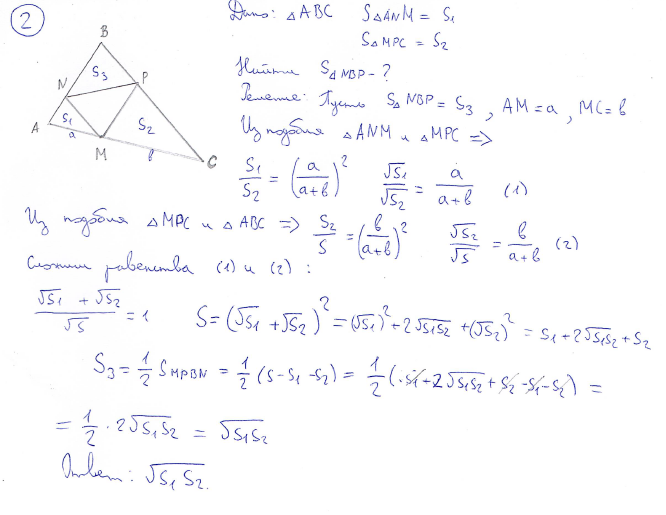 2
Дано: △ABC S△ANM = S₁
S△MPC = S₂
Найти S△NBP - ?
Решение: Пусть S△NBP = S₃, AM = a, MC = b
Из подобия △ANM и △MPC =>
S₁/S₂ = (a/(a+b))² √S₁/√S₂ = a/(a+b) (1)
Из подобия △MPC и △ABC => S₂/S = (b/(a+b))² √S₂/√S = b/(a+b) (2)
Сложим равенства (1) и (2):
(√S₁ + √S₂)/√S = 1 S = (√S₁ + √S₂)² = (√S₁)² + 2√S₁S₂ + (√S₂)² = S₁ + 2√S₁S₂ + S₂
S₃ = 1/2 S MPBN = 1/2 (S - S₁ - S₂) = 1/2 (S₁ + 2√S₁S₂ + S₂ - S₁ - S₂) =
= 1/2 · 2√S₁S₂ = √S₁S₂
Ответ: √S₁S₂.
B
S₃
N
P
A
S₁
S₂
a
M
b
C